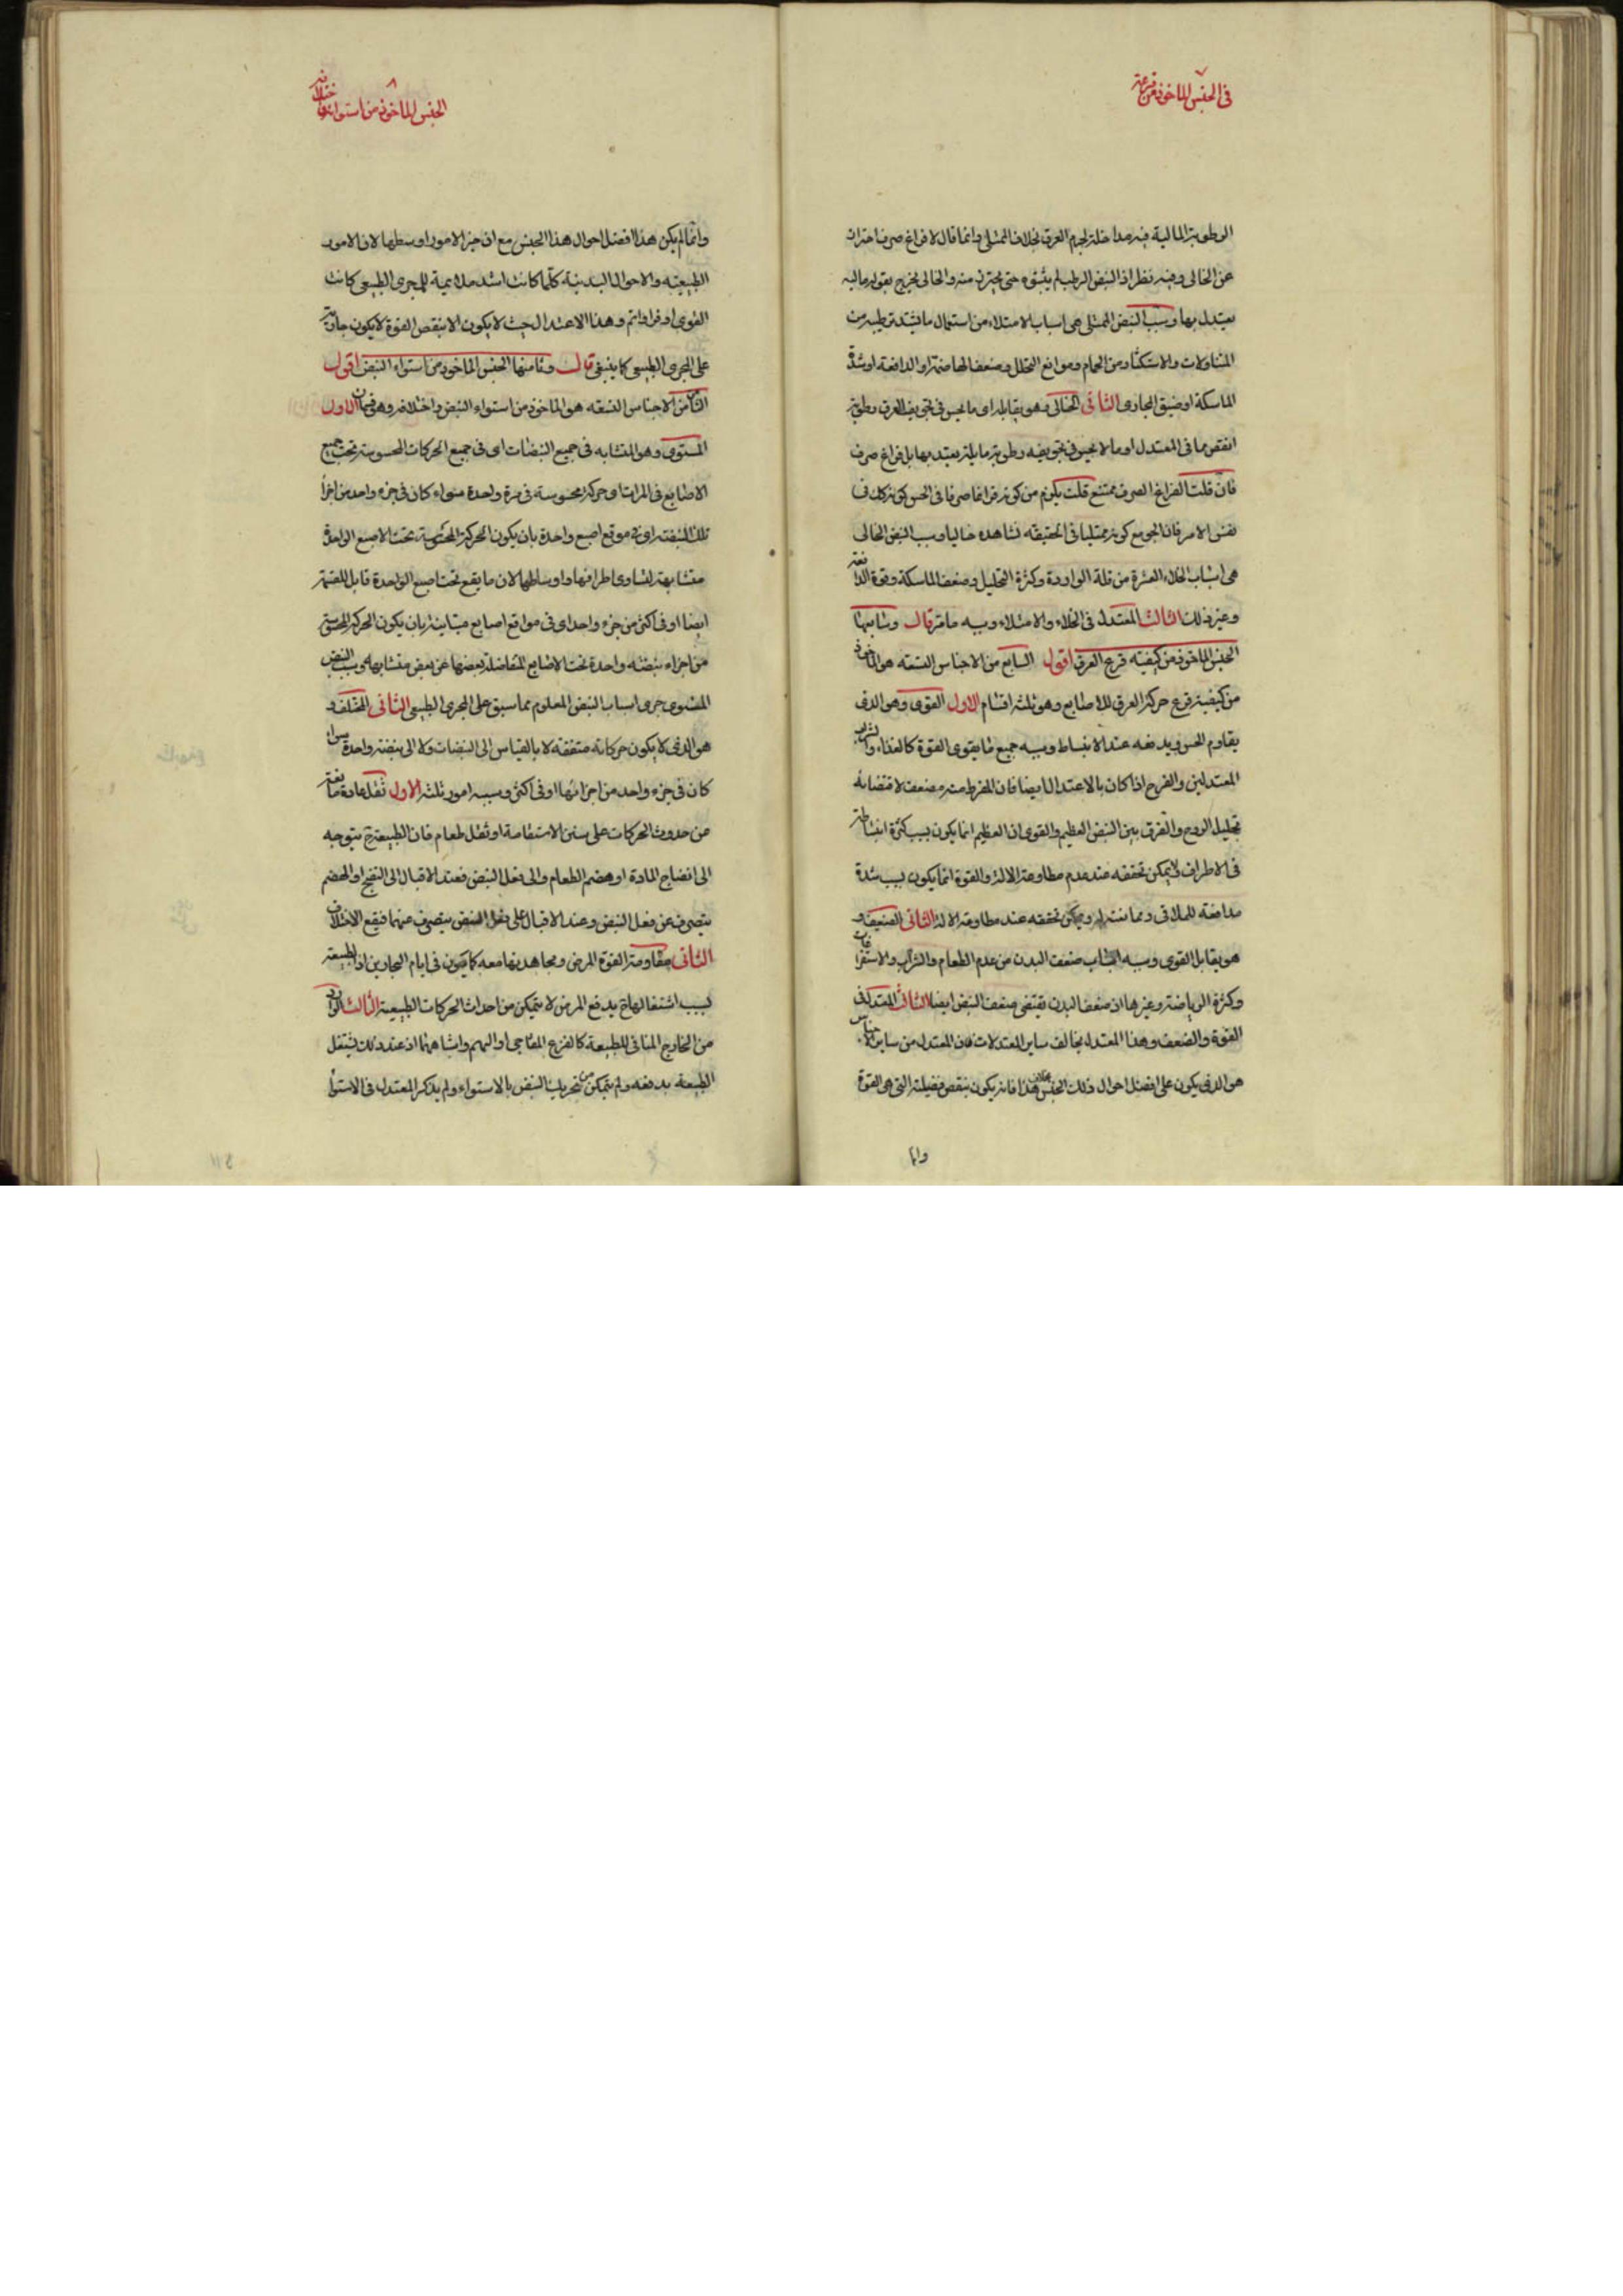 في الجنس الماخوذ من قرعته
الرطوبة المالية فيه مداخلة لجرم العرق بخلاف الممتلى وانما قال لا فراغ صرف احترازا
عن الخالى وفيه نظر اذ النبض الرطب لم يثبتوه حتى يحترز منه والخالى يخرج بقوله مالية
يعتد بها وسبب النبض الممتلى هى اسباب الامتلاء من استعمال ما يشتد ترطيبه من
المتناولات والاستكثار من الحمام وموانع التحلل وضعف الهاضمة او الدافعة او شدة
الماسكة او ضيق المجارى الثانى الخالى وهو يقابله اى ما يحس فى تجويف العرق رطوبة
انقص مما فى المعتدل او ما لا يحس فى تجويفه رطوبة مايلة يعتد بها بل فراغ صرف
فان قلت الفراغ الصرف ممتنع قلت يكون من كونه فراغا صرفا فى الحس كونه كذلك فى
نفس الامر فان الجو مع كونه ممتليا فى الحقيقة نشاهده خاليا وسبب النبض الخالى
هى اسباب الخلاء العشرة من قلة الواردة وكثرة التحليل وضعف الماسكة وقوة الدافعة
وغير ذلك الثالث المعتدل فى الخلاء والامتلاء وسببه ما مر قال وسابعها
الجنس الماخوذ من كيفية قرع العرق اقول السابع من الاجناس التسعة هو الماخوذ
من كيفية قرع حركة العرق للاصابع وهو ثلثة اقسام الاول القوى وهو الذى
يقاوم الحس ويدفعه عند الانبساط وسببه جميع ما يقوى القوة كالغذاء والشراب
المعتدلين والفرح اذا كان بالاعتدال ايضا فان المفرط منه مضعف لاقتضائه
تحليل الروح والفرق بين النبض العظيم والقوى ان العظيم انما يكون بسبب كثرة انبساطه
فى الاطراف لا يمكن تحققه عند عدم مطاوعة الالة والقوة انما يكون بسبب شدة
مدافعة للملاقى وممانعته له ويمكن تحققه عند مطاوعة الالة الثانى الضعيف و
هو يقابل القوى وسببه اسباب ضعف البدن من عدم الطعام والشراب والاستفراغات
وكثرة الرياضة وغيرها اذ ضعف البدن يقتضى ضعف النبض ايضا الثالث المعتدل فى
القوة والضعف وهذا المعتدل يخالف ساير المعتدلات فان المعتدل من ساير الاجناس
هو الذى يكون على افضل احوال ذلك الجنس بخلاف هذا فانه يكون بنقص فضيلته التى هى القوة
وانما
الجنس الماخوذ من استوائه واختلافه
وانما لم يكن هذا افضل احوال هذا الجنس مع ان خير الامور اوسطها لان الامور
الطبيعية والاحوال البدنية كلما كانت اشد ملائمية للمجرى الطبيعى كانت
القوى اوفر واتم وهذا الاعتدال حيث لا يكون الا بنقص القوة لا يكون جاريته
على المجرى الطبيعى كما ينبغى قال وثامنها الجنس الماخوذ من استواء النبض اقول
الثامن من الاجناس التسعة هو الماخوذ من استواء النبض واختلافه وهو قسمان الاول
المستوى وهو المتشابه فى جميع النبضات اى فى جميع الحركات المحسوسة تحت جميع
الاصابع فى المرات او حركة محسوسة فى مرة واحدة سواء كان فى جزء واحد من اجزاء
تلك النبضة اى فى موقع اصبع واحدة بان يكون الحركة المحسوسة تحت الاصبع الواحدة
متشابهة لتساوى اطرافها واوساطها لان ما يقع تحت اصبع الواحدة قابل للقسمة
ايضا او فى اكثر من جزء واحد اى فى مواقع اصابع متباينة بان يكون الحركة المحسوسة
من اجزاء نبضة واحدة تحت الاصابع المتفاضلة بعضها عن بعض متشابهة وسبب النبض
المستوى جرى اسباب النبض المعلوم مما سبق على المجرى الطبيعى الثانى المختلف و
هو الذى لا يكون حركاته متفقة لا بالقياس الى النبضات ولا الى نبضة واحدة سواء
كان فى جزء واحد من اجزائها او فى اكثر وسببه امور ثلثة الاول ثقل مادة مانعة
من حدوث الحركات على سنن الاستقامة او ثقل طعام فان الطبيعة ح يتوجه
الى انضاج المادة او هضم الطعام والى فعل النبض فعند الاقبال الى النضج او الهضم
ينصرف عن فعل النبض وعند الاقبال على فعل النبض ينصرف عنهما فيقع الاختلاف
الثانى مقاومة القوة المرض ومجاهدتها معه كما يكون فى ايام البحارين اذ الطبيعة
بسبب اشتغالها ح بدفع المرض لا يتمكن من احداث الحركات الطبيعية الثالث الوارد
من الخارج المنافى للطبيعة كالفزع المفاجى او الهم واشباههما اذ عند ذلك يشتغل
الطبيعة بدفعه ولم يتمكن من تحريك النبض بالاستواء ولم يذكر المعتدل فى الاستواء